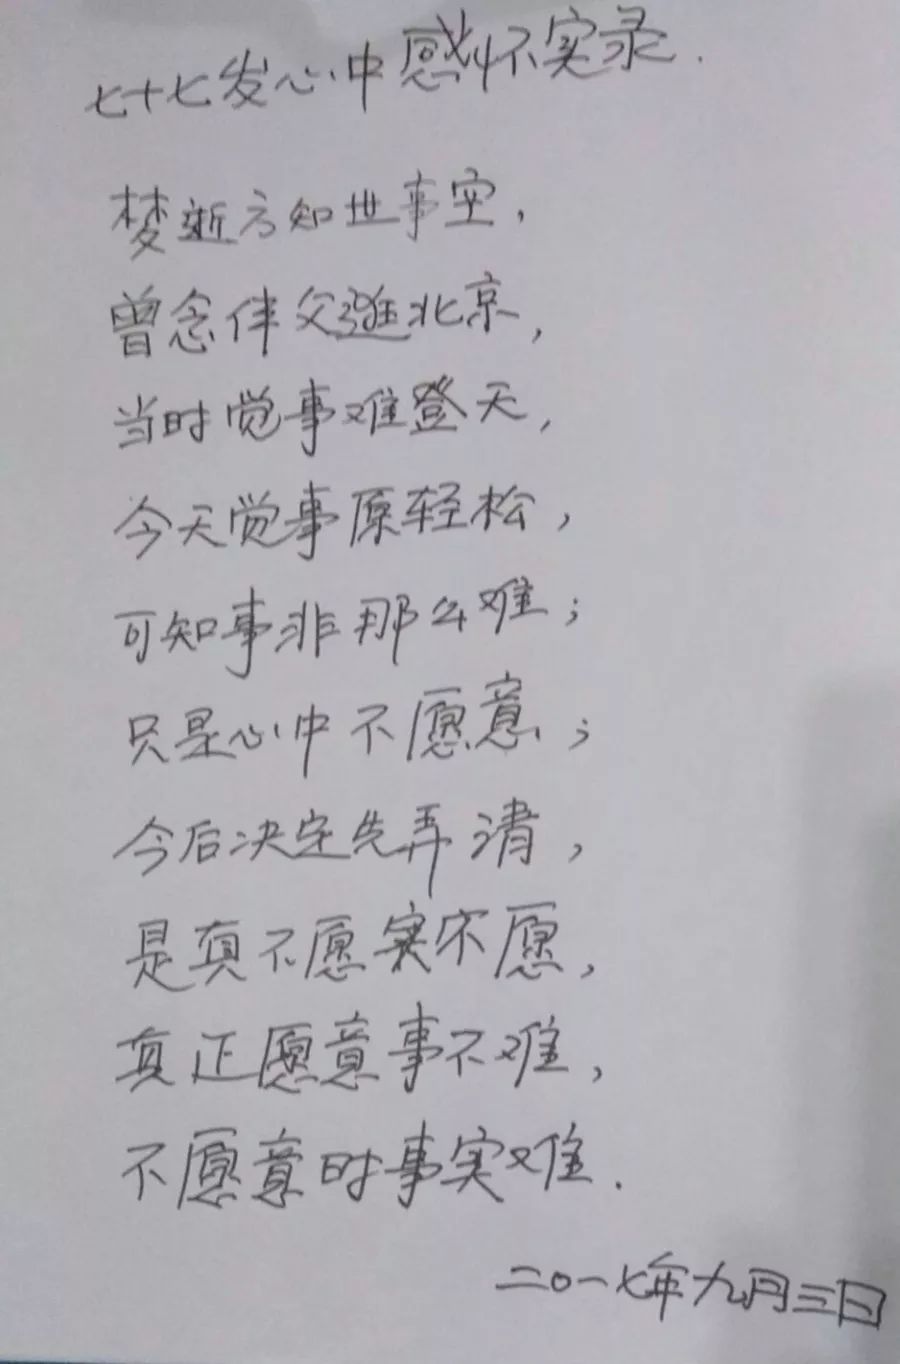 七十七发心中感怀实录.
梦逝方知世事空，
曾念伴父逛北京，
当时觉事难登天，
今天觉事原轻松，
可知事非那么难；
只是心中不愿意；
今后决定先弄清，
是真不愿实不愿，
真正愿意事不难，
不愿意时事实难.
二〇一七年九月三日